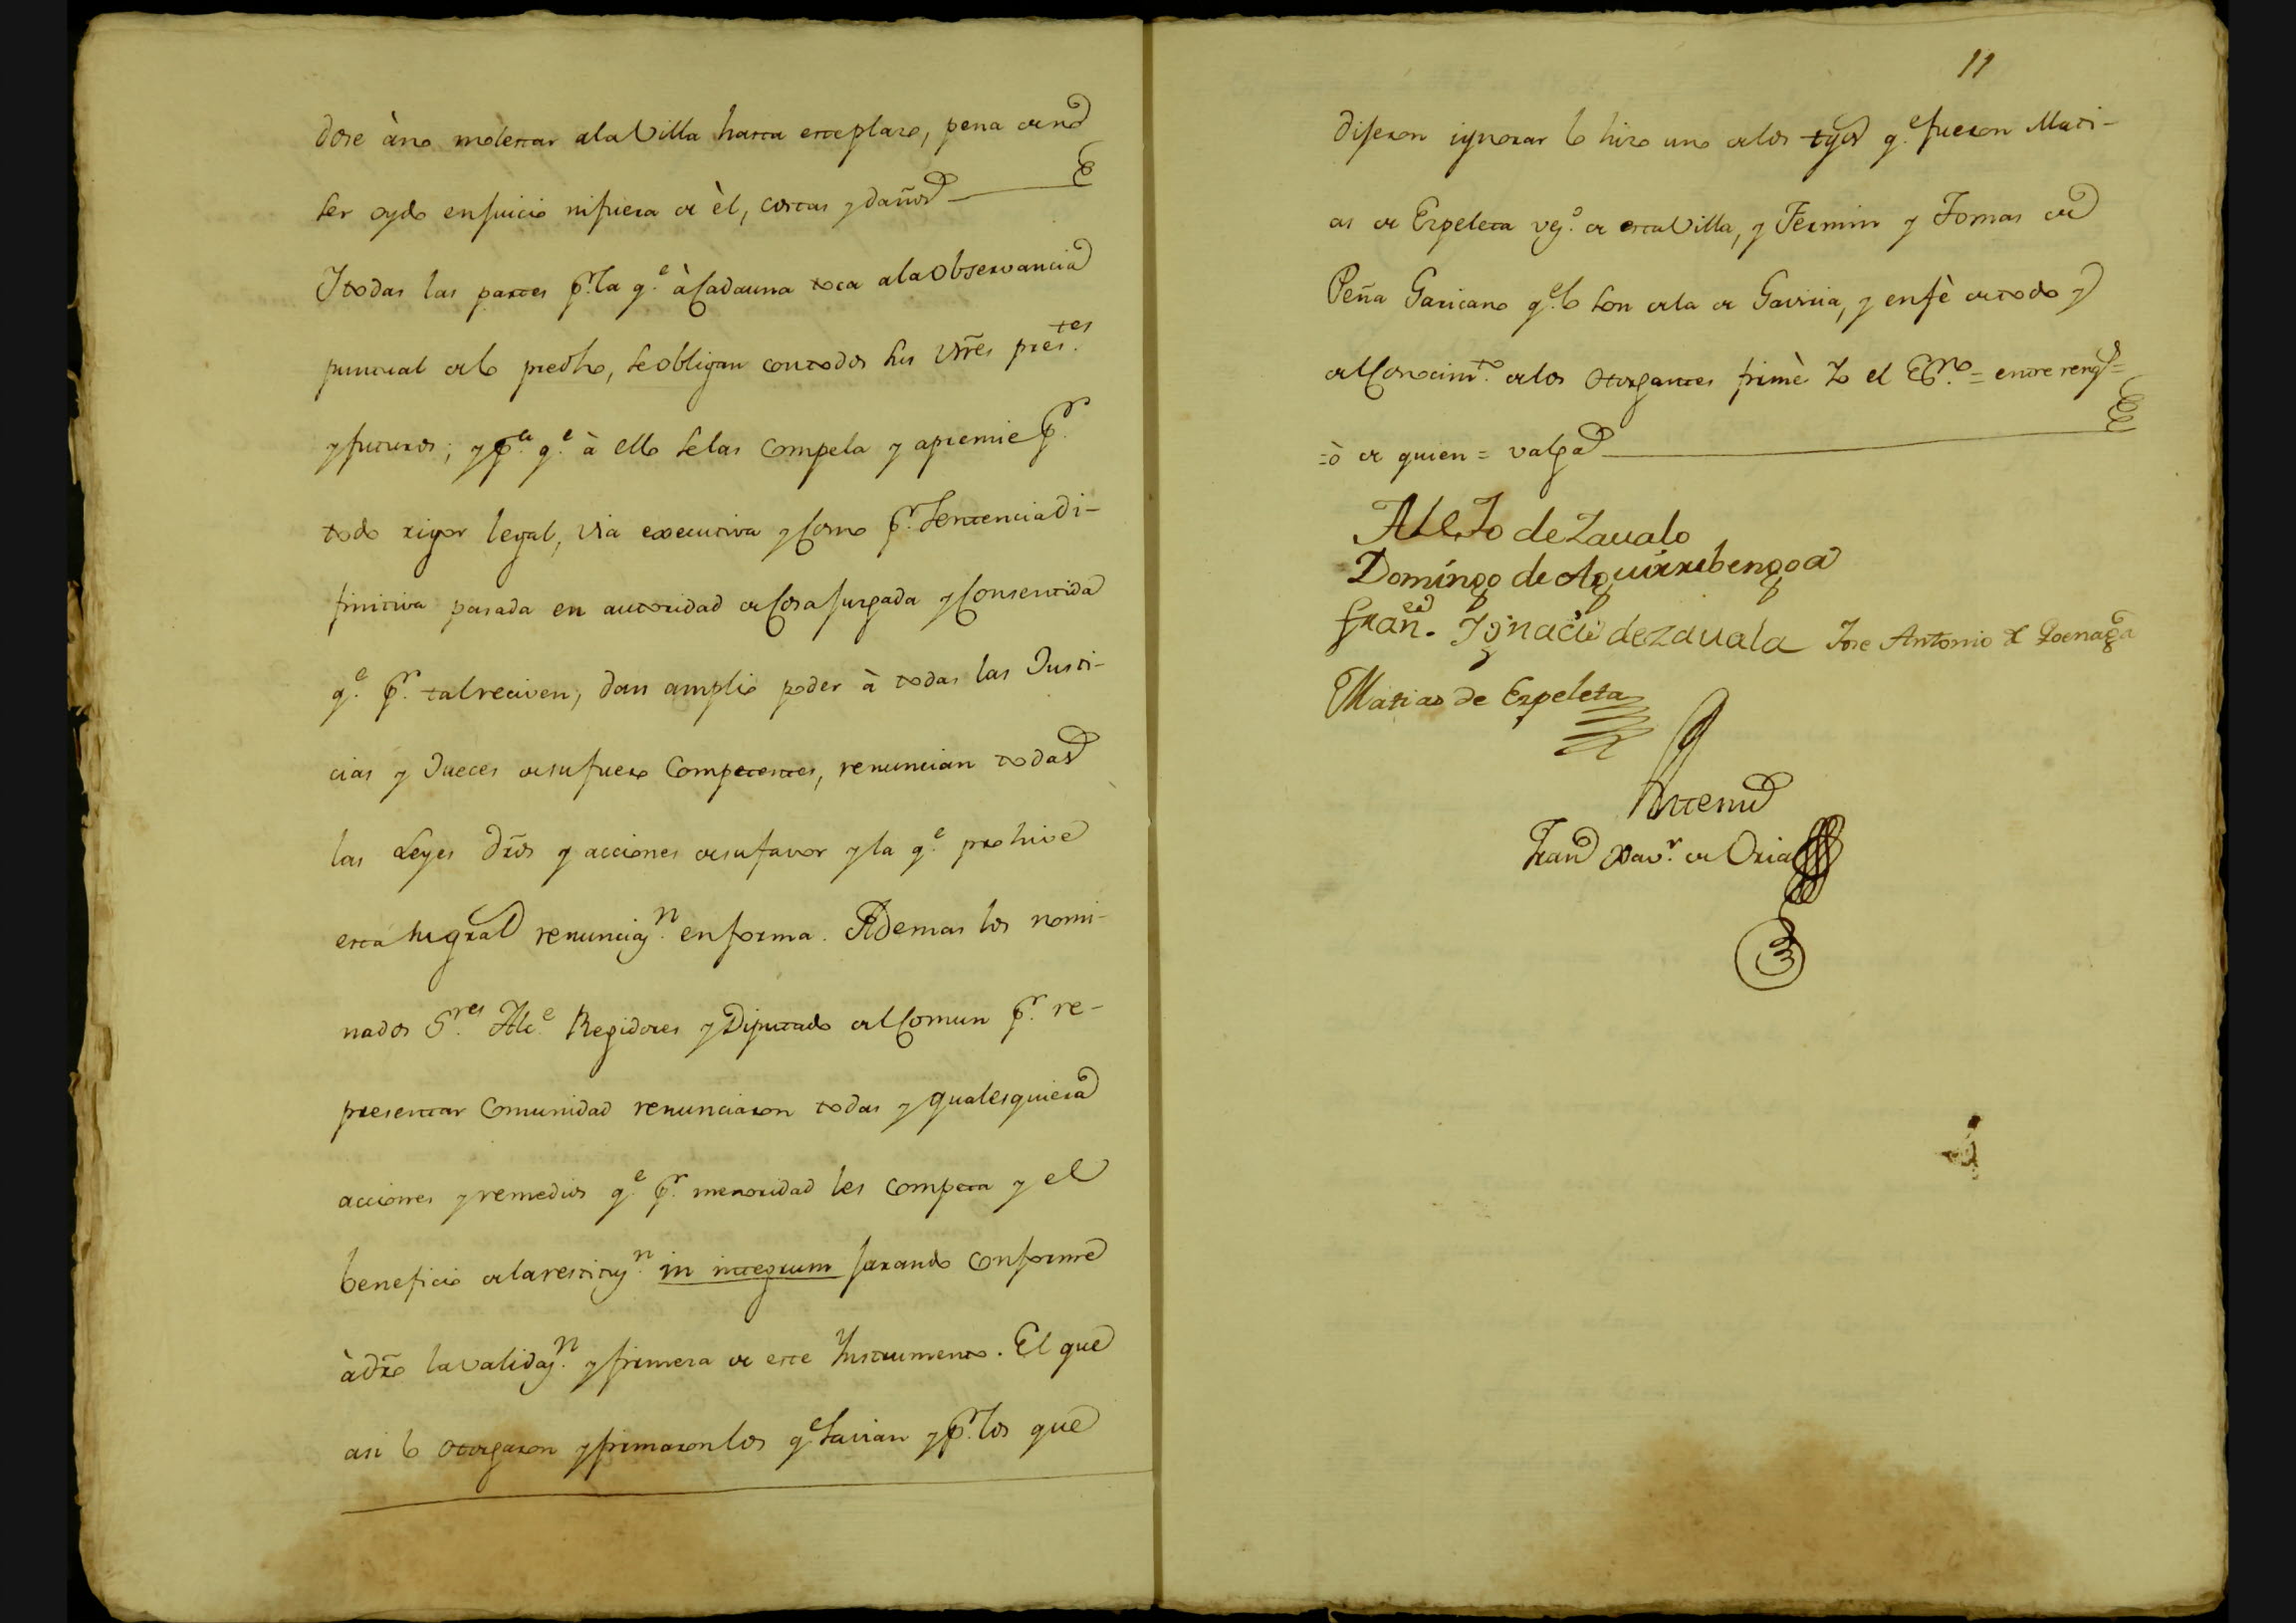 dose à no molestar ala Villa hasta este plazo, pena de no
ser oydo en juicio ni fuera de èl, costas y daños
Y todas las partes pr. la q.e à Cada una toca ala Observancia
puntual de lo predho, se obligan con todos sus Vres pres.tes
y futuros; y p.a q.e à ello se las Compela y apremie pr.
todo rigor legal, via executiva y Como pr. Sentencia di-
finitiva pasada en autoridad de Cosa Juzgada y Consentida
q.e pr. tal reciven, dan amplio poder à todas las Justi-
cias y Jueces de su fuero Competentes, renuncian todas
las Leyes dros y acciones de su favor y la q.e prohive
esta su gral renunciaz.n en forma. Ademas los nomi-
nados S.res Alc.e Regidores y Diputado del Comun pr. re-
presentar Comunidad renunciaron todas y qualesquiera
acciones y remedios q.e pr. menoridad les competa y el
beneficio de la restituz.n in integrum jurando Conforme
à dro la validaz.n y firmeza de este Instrumento. El que
asi lo otorgaron y firmaron los q.e savian y pr. los que
11
dijeron ignorar lo hizo uno de los tgos q.e fueron Mati-
as de Ezpeleta vez.o de esta Villa, y Fermin y Tomas de
Peña Garicano q.e lo son de la de Gaviria, y en fè de todo y
del Conocim.to de los Otorgantes firmè Yo el Es.no = entre reng.s =
= ò de quien = valga
Alejo de Zauala
Domingo de Aguirrebengoa
Fran.co Ignacio de zauala Jose Antonio de Goenaga
Matias de Ezpeleta
Ante mi
Fran.co Xav.r de Oria